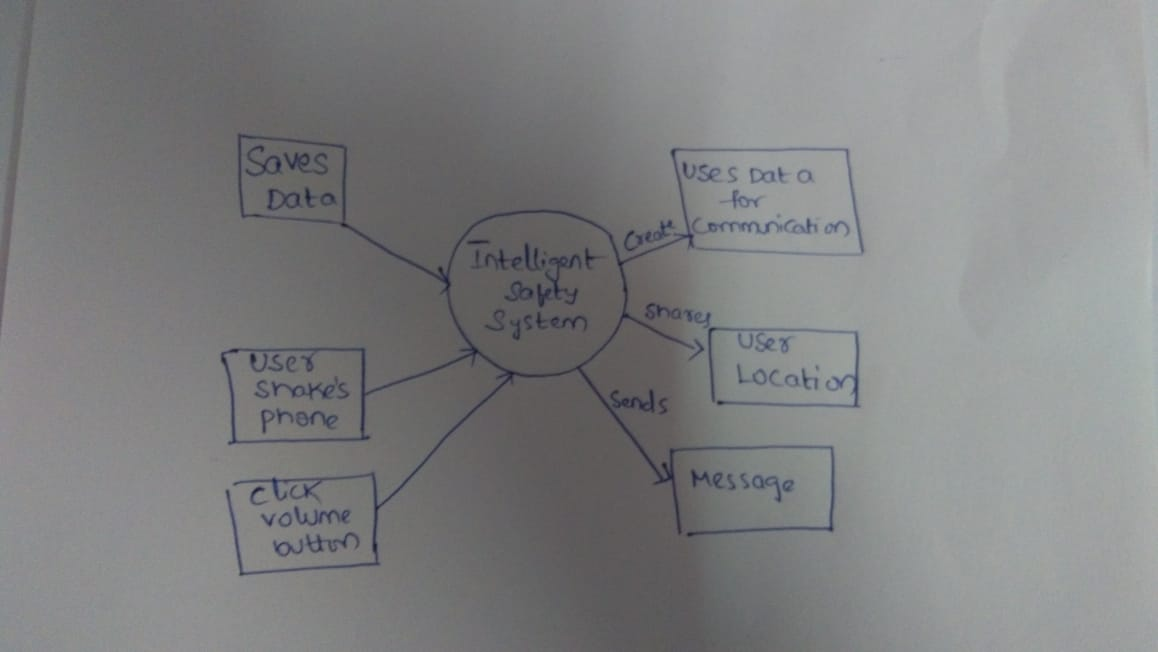 Saves
Data
User
Shake's
phone
Click
volume
button
Intelligent
Safety
System
Create
Shares
Sends
Uses Data
for
Communication
User
Location
Message